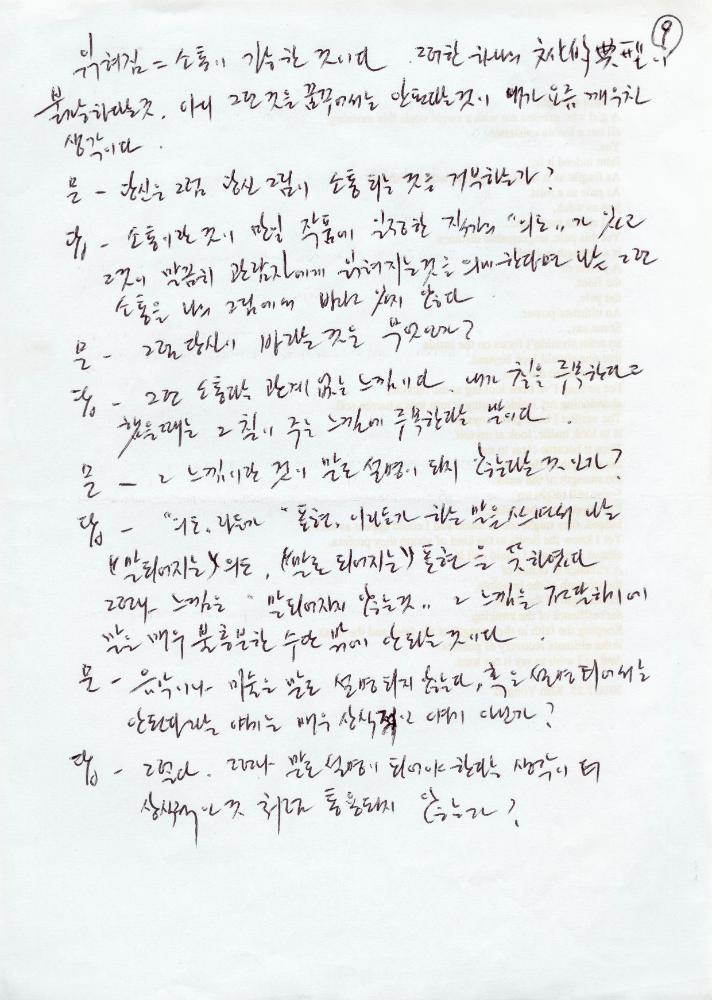 ⑨
읽혀짐 = 소통이 가능한 것이다. 그러한 하나의 典型이
불가능하다는 것, 아니 그런 것을 꿈꾸어서는 안된다는 것이 내가 요즘 깨우친
생각이다.
문 - 당신은 그럼 당신 그림이 소통되는 것을 거부하는가?
답 - 소통이란 것이 만일 작품에 일정한 작가의 "의도"가 있고
그것이 말끔히 관람자에게 읽혀지는 것을 의미한다면 나는 그런
소통을 나의 그림에서 바라고 있지 않다
문 - 그럼 당신이 바라는 것은 무엇인가?
답 - 그런 소통과는 관계 없는 느낌이다. 내가 칠을 주목한다고
했을 때는 그 칠이 주는 느낌에 주목한다는 말이다.
문 - 그 느낌이란 것이 말로 설명이 되지 않는다는 것인가?
답 - "의도"라든가 "표현"이라든가 하는 말을 쓰면서 나는
(말되어지는) 의도, (말로 되어지는) 표현을 뜻하였다
그러나 느낌은 "말되어지지 않는 것" 그 느낌을 전달하기에
말은 매우 불충분한 수단 밖에 안되는 것이다.
문 - 음악이나 미술은 말로 설명되지 않는다, 혹은 설명되어서는
안된다라는 얘기는 매우 상식적인 얘기 아닌가?
답 - 그렇다. 그러나 말로 설명이 되어야 한다는 생각이 더
상식적인 것처럼 통용되지 않는가?